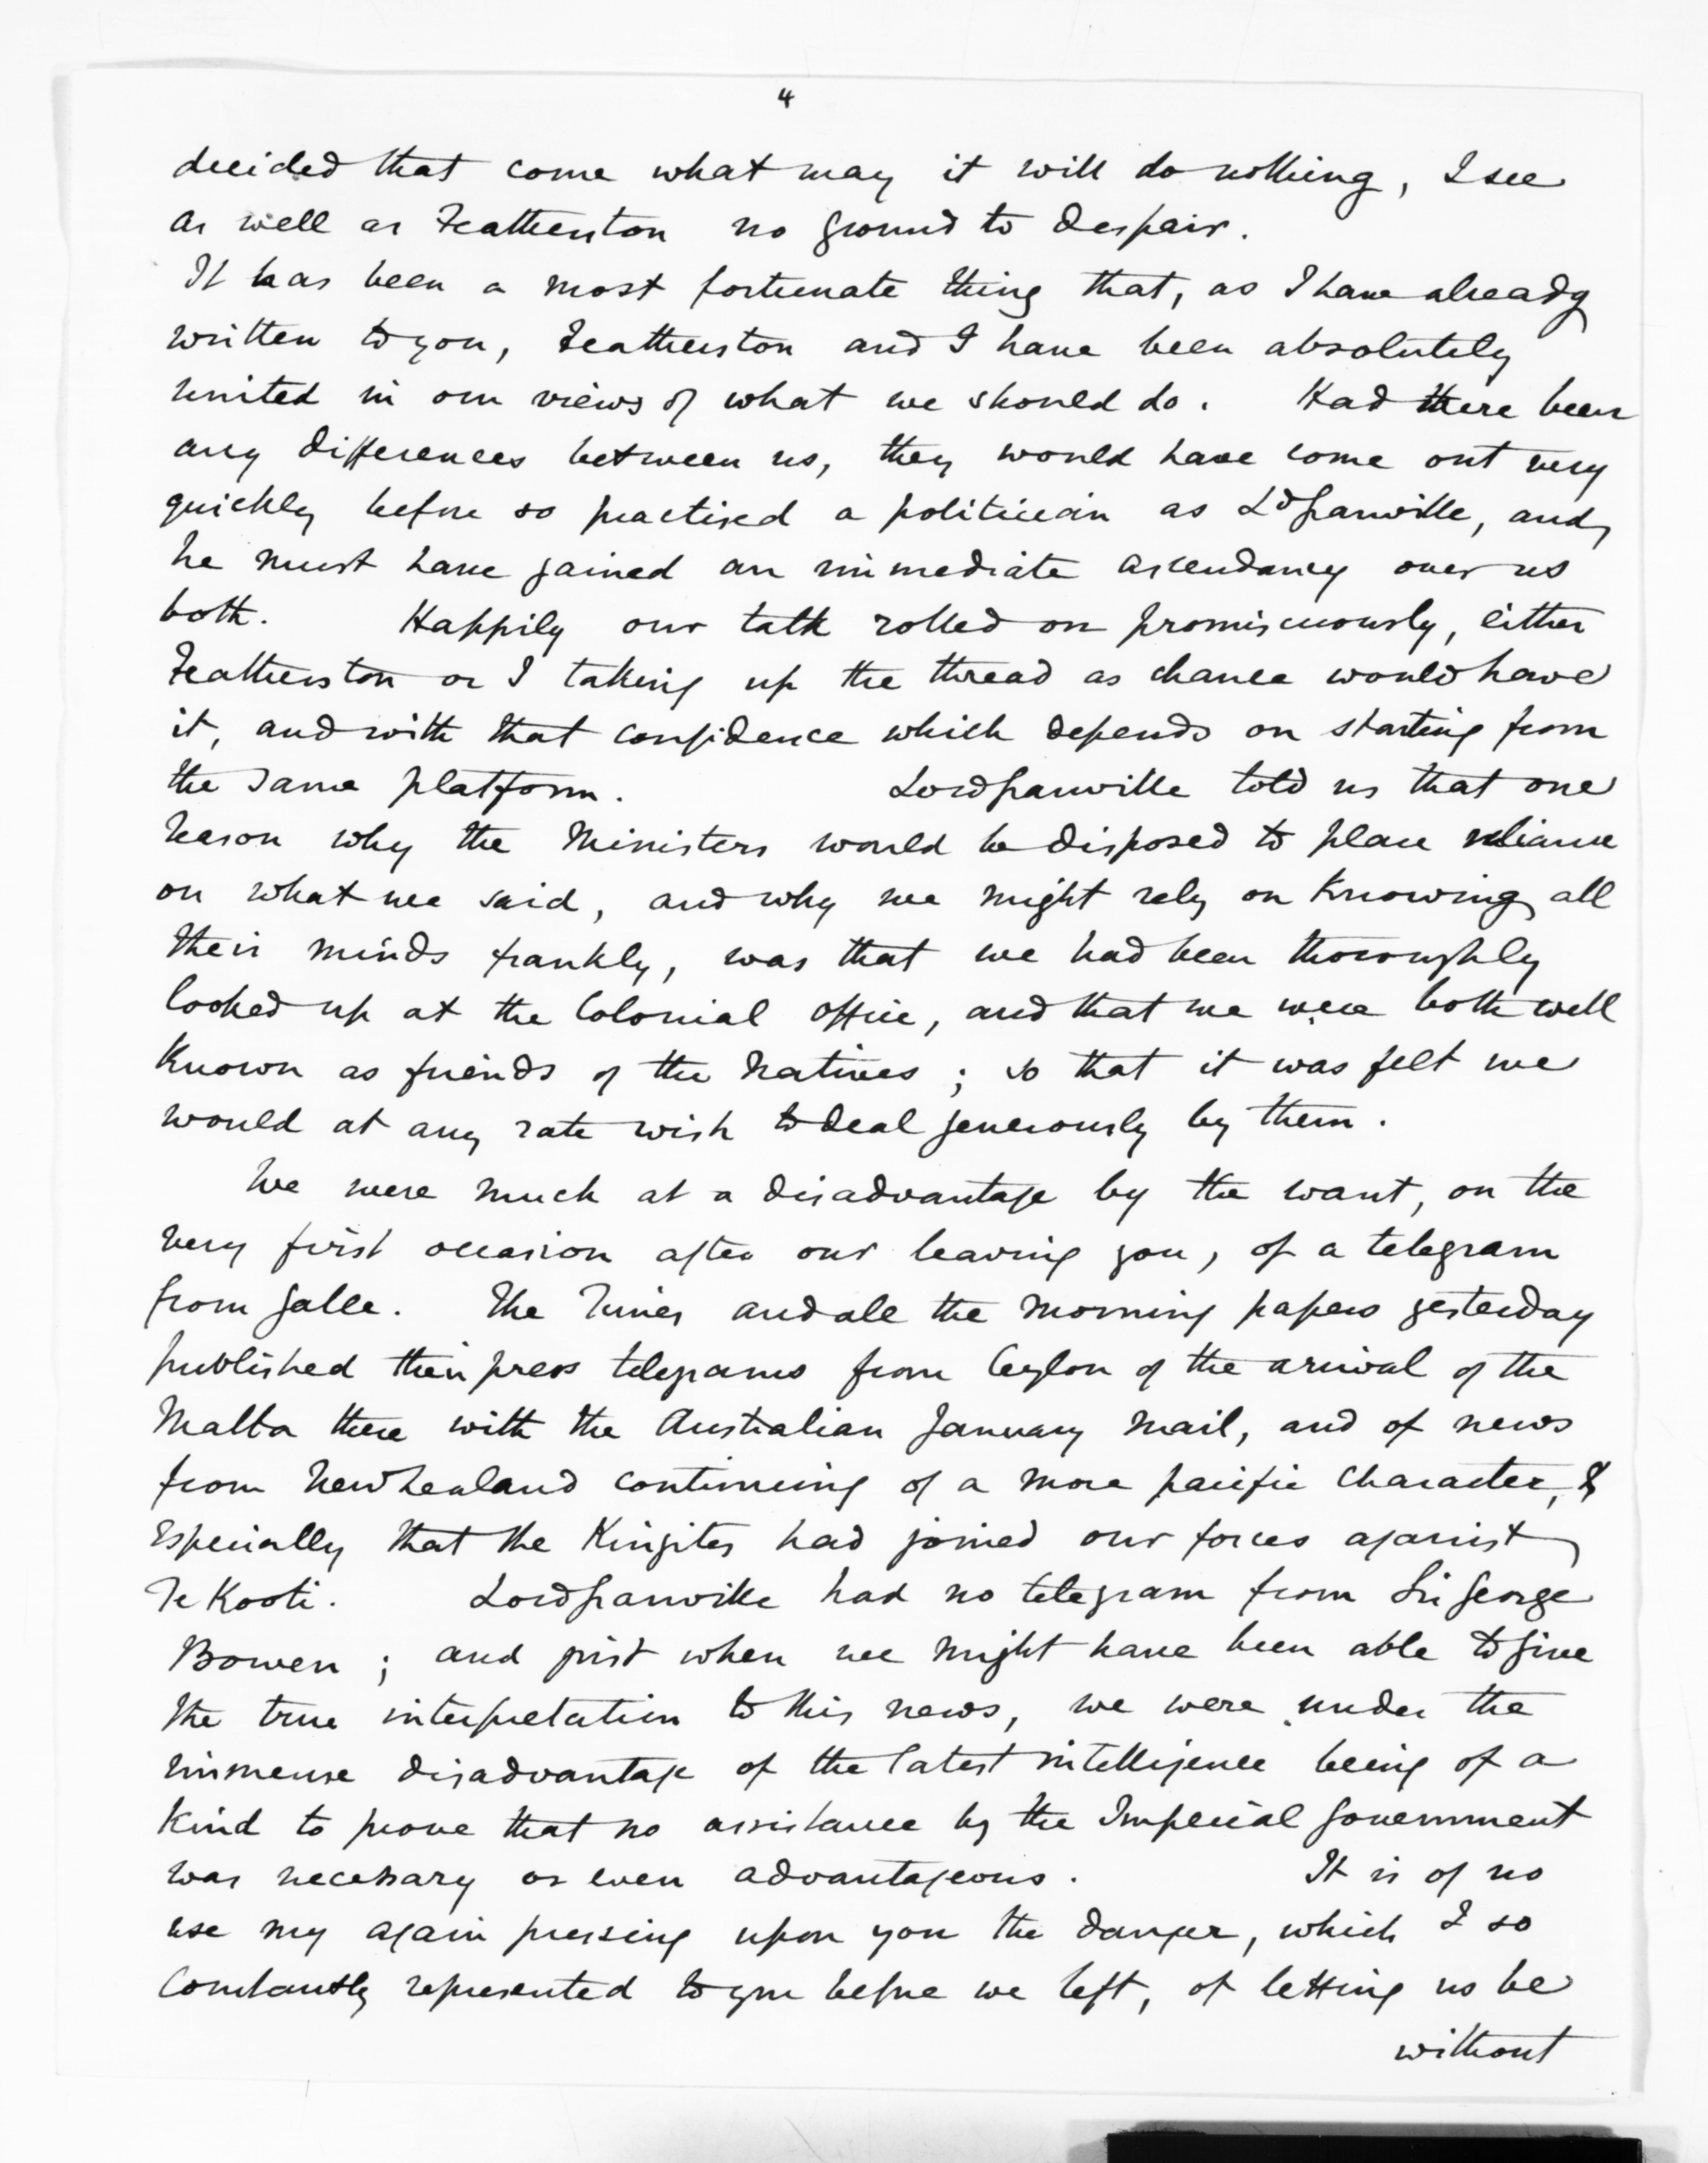 4
decided that come what may it will do nothing, I see
as well as Featherston no ground to despair.
It has been a most fortunate thing that, as I have already
written to you, Featherston and I have been absolutely
united in our views of what we should do. Had there been
any differences between us, they would have come out very
quickly before so practised a politician as Ld Granville, and
he must have gained an immediate ascendancy over us
both. Happily our talk rolled on promiscuously, either
Featherston or I taking up the thread as chance would have
it, and with that confidence which depends on starting from
the same platform. Lord Granville told us that one
reason why the Ministers would be disposed to place reliance
on what we said, and why we might rely on knowing all
their minds frankly, was that we had been thoroughly
looked up at the Colonial office, and that we were both well
known as friends of the Natives; so that it was felt we
would at any rate wish to deal generously by them.
We were much at a disadvantage by the want, on the
very first occasion after our leaving you, of a telegram
from Galle. The Times and all the morning papers yesterday
published their press telegrams from Ceylon of the arrival of the
Malta there with the Australian January mail, and of news
from New Zealand continuing of a more pacific character, &
especially that the Kingites had joined our forces against
Te Kooti. Lord Granville had no telegram from Sir George
Bowen; and just when we might have been able to give
the true interpretation to this news, we were under the
immense disadvantage of the latest intelligence being of a
kind to prove that no assistance by the Imperial Government
was necessary or even advantageous. It is of no
use my again pressing upon you the danger, which I so
constantly represented to you before we left, of letting us be
without